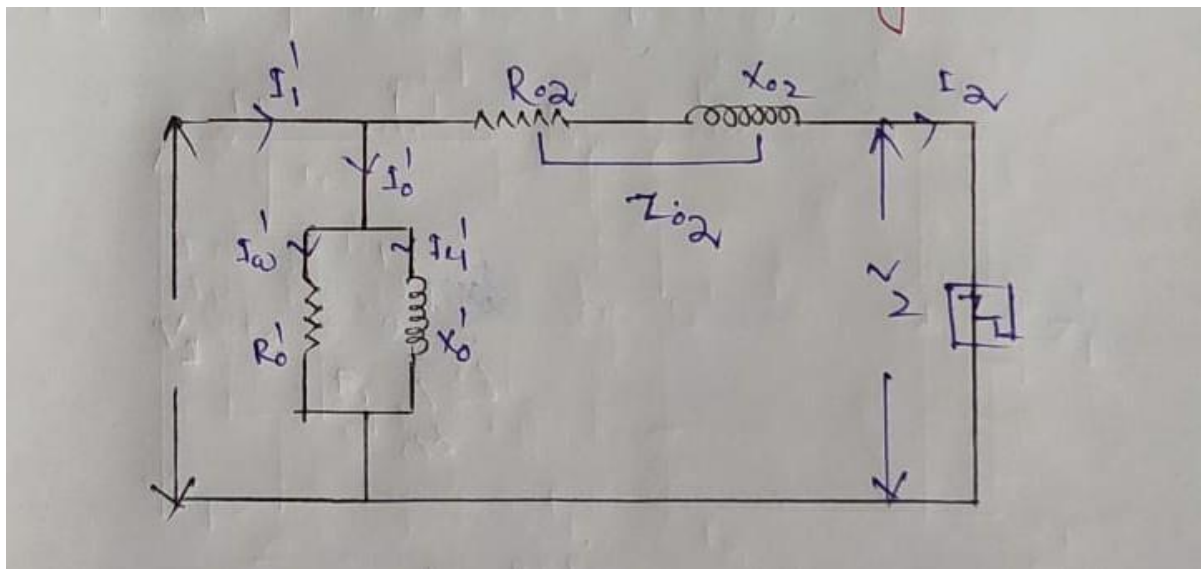 I₁'
R₀₂
X₀₂
I₂
I₀'
Z₀₂
Iω'
Iμ'
V₂
R₀'
X₀'
Z_L